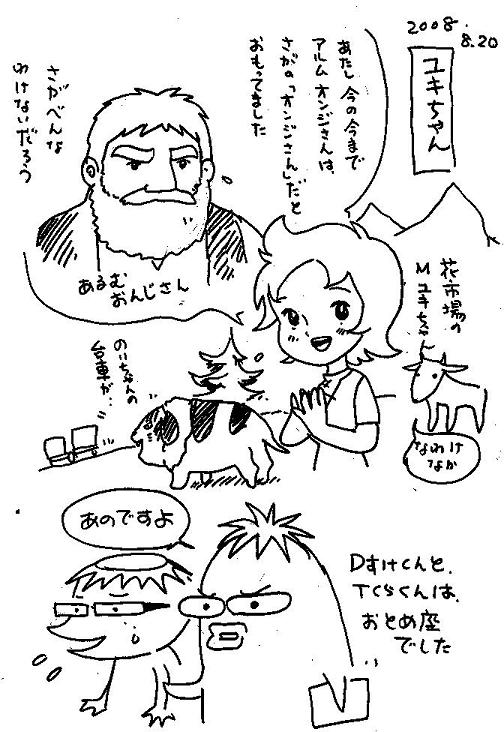 2008.
8.20
ユキちゃん
あたし今の今まで
アルムオンジさんは、
さがの「オンジさん」だと
おもってました
さがべんな
わけないだろう
あるむ
おんじさん
花市場の
Mユキちゃん
なわけ
なか
のいちゃんの
台車が…
あのですよ
Dすけくんと、
TCSくんは、
おとめ座
でした